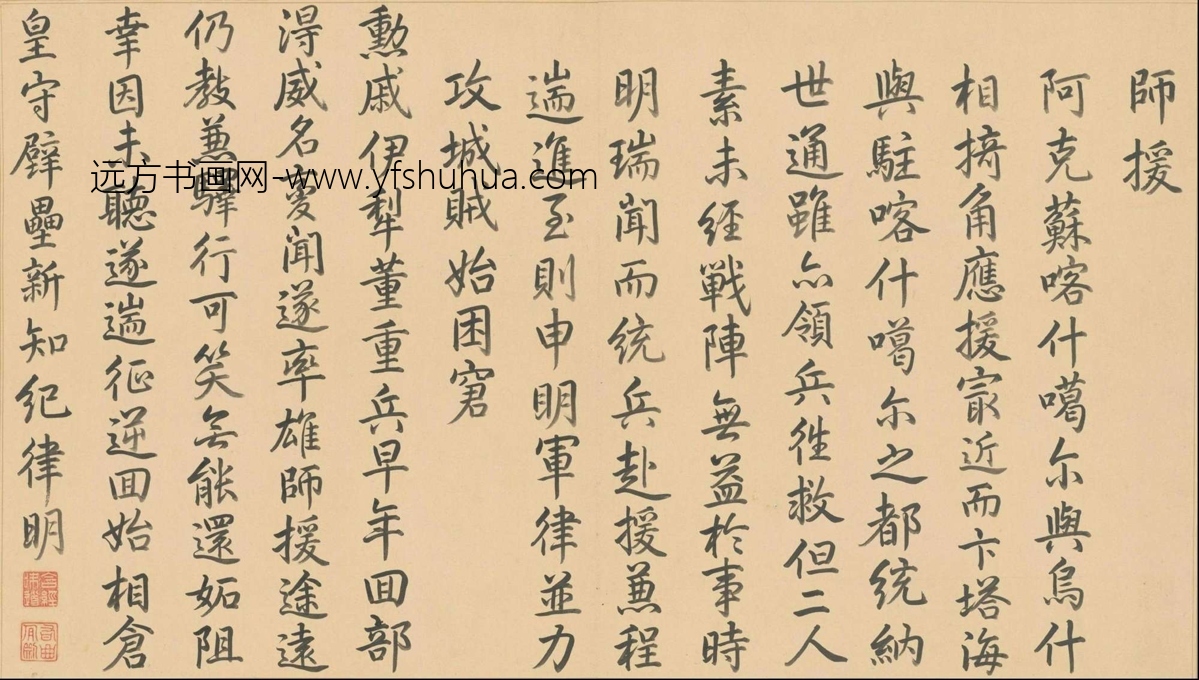 師援
阿克蘇喀什噶尓與烏什
相掎角應援㝡近而卞塔海
與駐喀什噶尓之都統納
世通雖亦領兵徃救但二人
素未經戰陣無益於事時
明瑞聞而統兵赴援兼程
遄進至則申明軍律並力
攻城賊始困窘
勳戚伊犂董重兵早年回部
淂威名變聞遂率雄師援途遠
仍教兼驛行可笑無能還妬阻
幸因未聽遂遄征逆回始相倉
皇守壁壘新知紀律明
远方书画网-www.yfshuhua.com